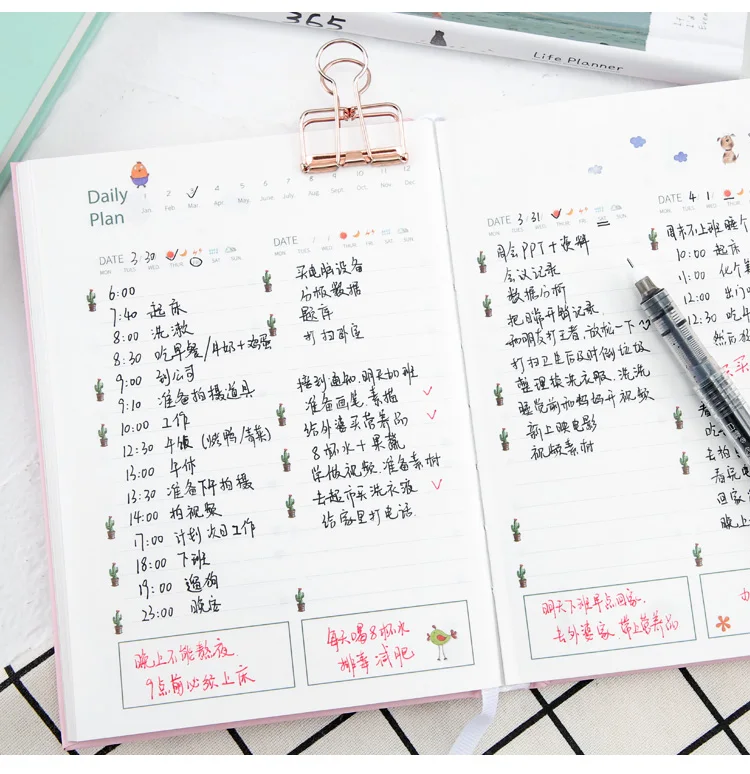 365
Life Planner
Daily
Plan
1 2 3 4 5 6 7 8 9 10 11 12
Jan. Feb. Mar. Apr. May. June. July. Aug. Sept. Oct. Nov. Dec.
DATE 3/30
MON TUES WED THUR FRI SAT SUN
6:00
7:40 起床
8:00 洗漱
8:30 吃早餐/牛奶+鸡蛋
9:00 到公司
9:10 准备拍摄道具
10:00 工作
12:30 午饭(烧鸭/青菜)
13:00 午休
13:30 准备下午拍摄
14:00 拍视频
17:00 计划次日工作
18:00 下班
19:00 遛狗
23:00 晚安
晚上不能熬夜
9点前必须上床
DATE / /
MON TUES WED THUR FRI SAT SUN
买电脑设备
分板数据
题库
打扫卧室
接到通知,明天加班
准备画笔 素描
给外婆买营养品
8杯水+果蔬
学做视频.准备素材
去超市买洗衣液
给家里打电话
每天喝8杯水
排毒减肥
DATE 3/31
MON TUES WED THUR FRI SAT SUN
周会PPT+资料
会议记录
数据分析
把日常开销记录
和朋友打王者,放松一下
打扫卫生后及时倒垃圾
整理换洗衣服.洗洗
睡觉前和妈妈开视频
新上映电影
视频素材
明天下班早点回家.
去外婆家 带上营养品
DATE 4/1
MON TUES WED THUR
周末不上班睡个
10:00 起床
11:00 化个
12:00 出门
12:30 吃午
然后
买
看
吃
去拍
看玩电
回家
晚上